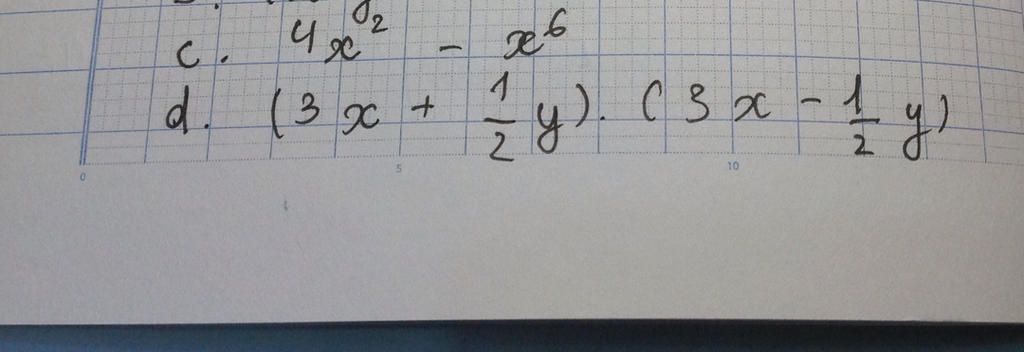 c. 4x² - x⁶
d. (3x + 1/2 y). (3x - 1/2 y)
0 5 10